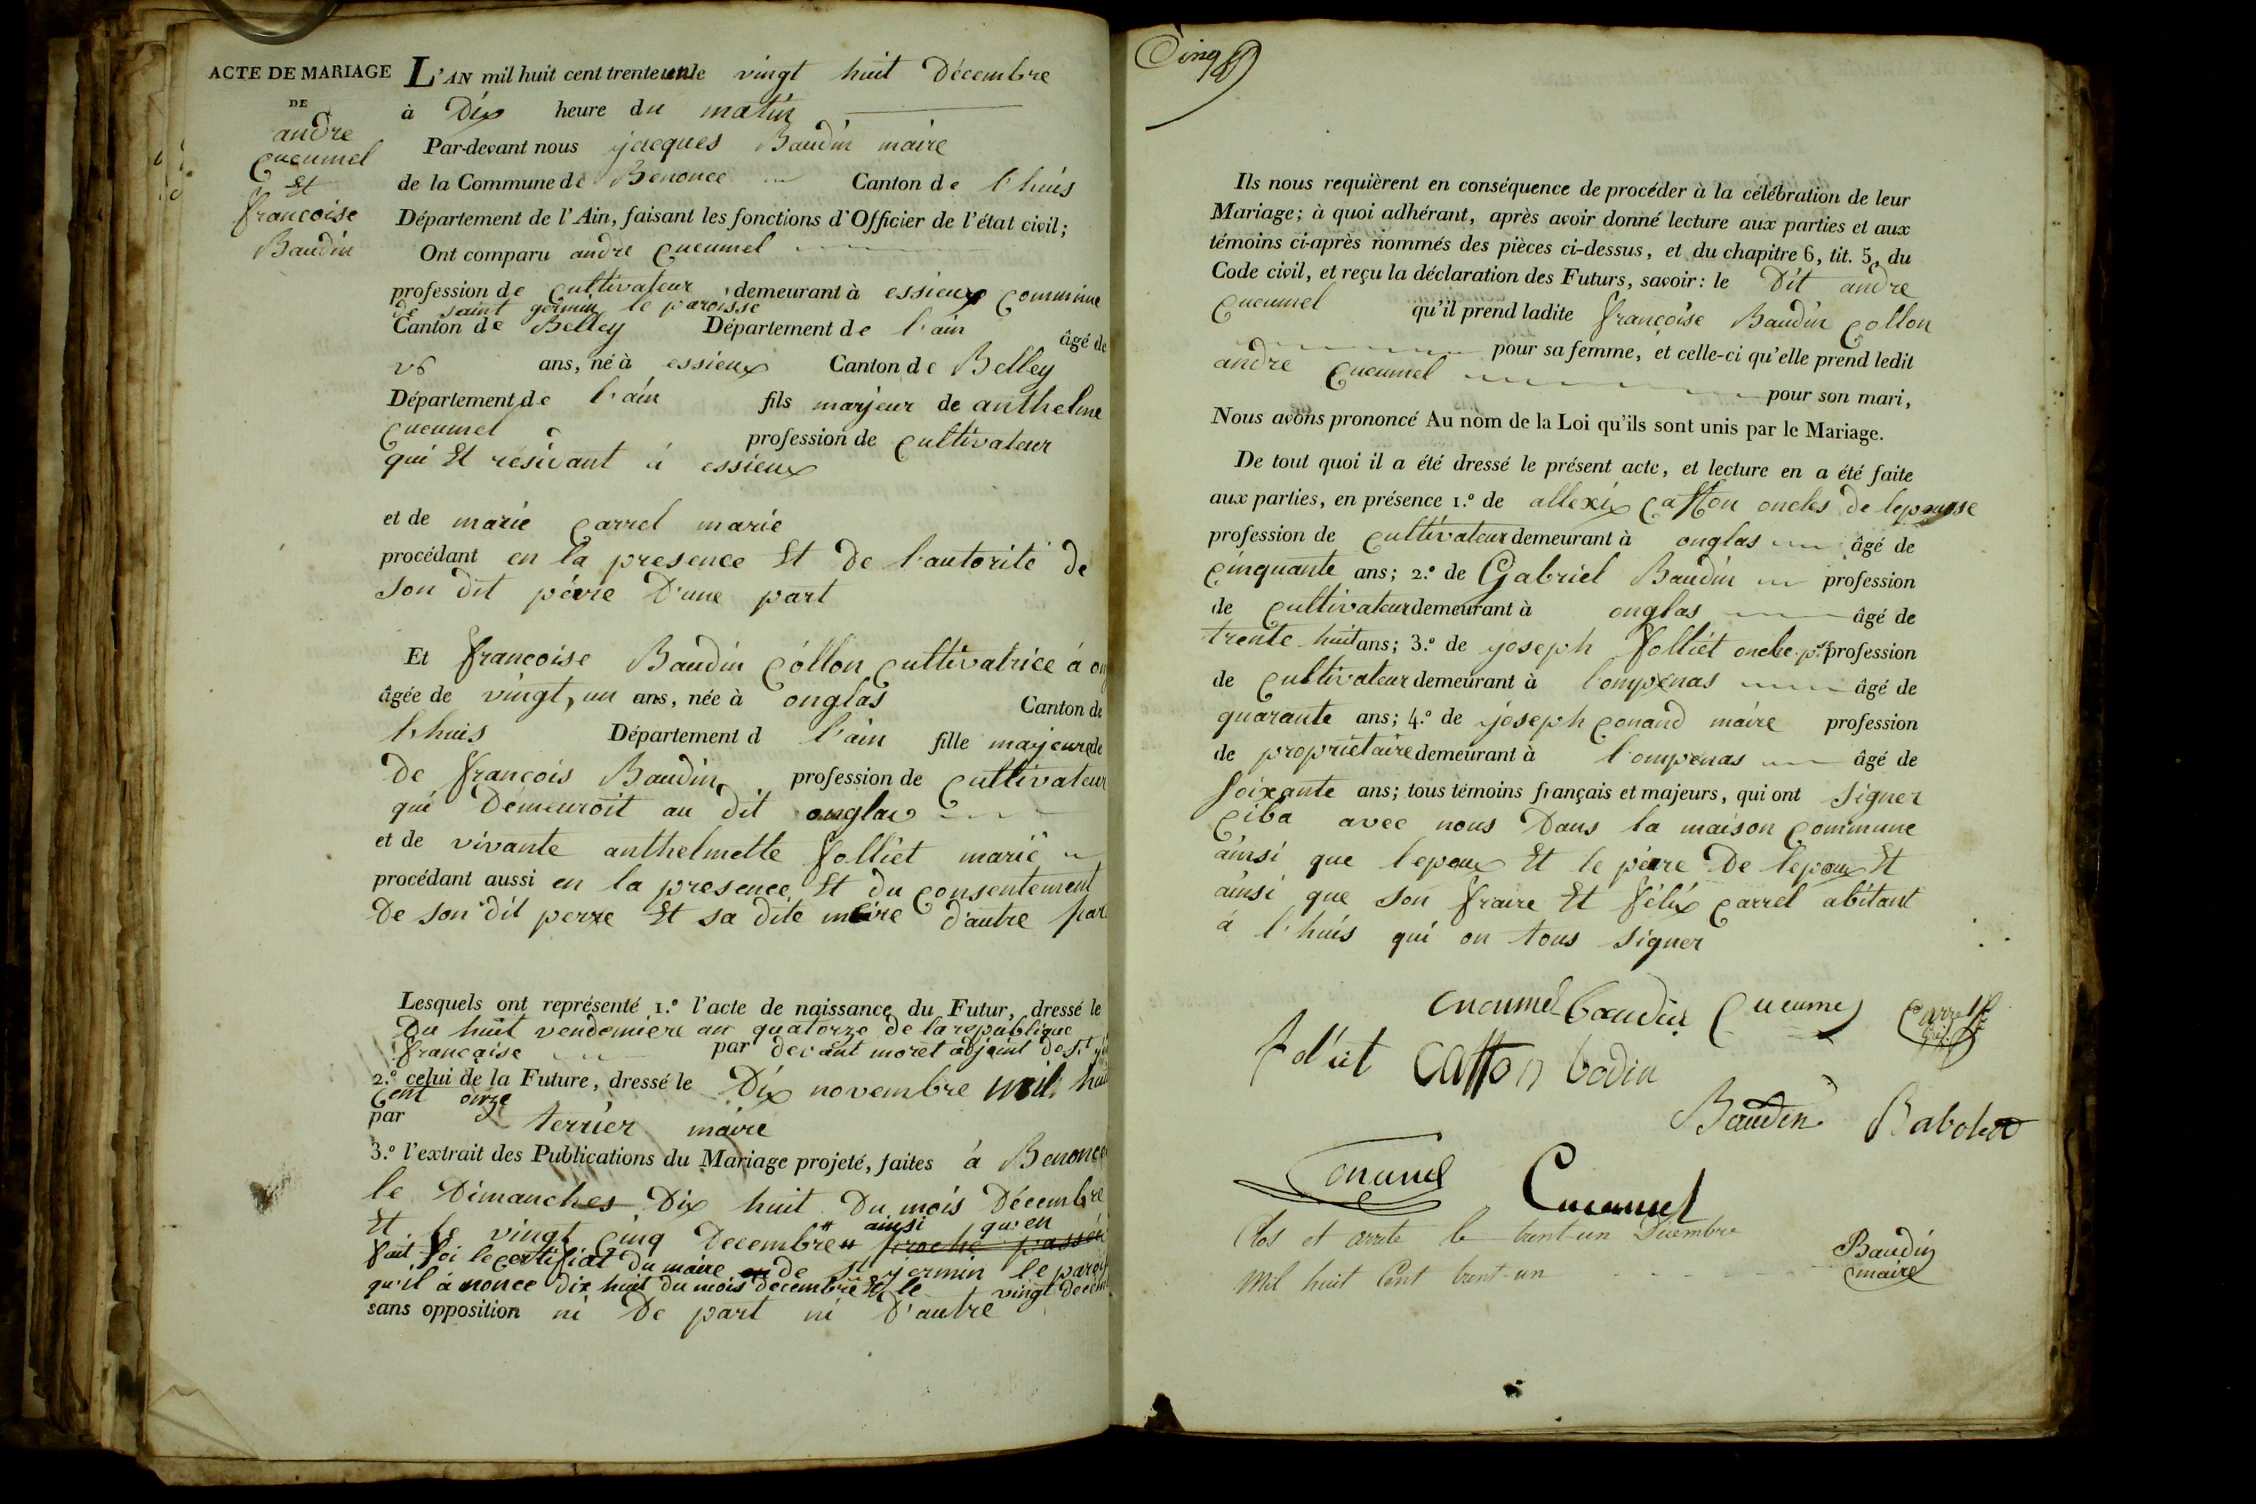 ACTE DE MARIAGE
DE
andre
Cucumel
Et
francoise
Baudin
L'AN mil huit cent trente un le vingt huit Décembre
à Dix heure du matin
Par-devant nous jacques Baudin maire
de la Commune de Benonce Canton de l'huis
Département de l'Ain, faisant les fonctions d'Officier de l'état civil;
Ont comparu andre Cucumel
profession de Cultivateur demeurant à essieux Commune
de saint germin le paroisse
Canton de Belley Département de l'ain âgé de
26 ans, né à essieux Canton de Belley
Département de l'ain fils marjeur de anthelme
Cucumel profession de Cultivateur
qui Et résidant à essieux
et de marie Carrel marié
procédant en la presence Et De l'autorité de
son dit péere D'une part
Et francoise Baudin Collon Cultivatrice à
âgée de vingt, un ans, née à onglas Canton de
l'huis Département d l'ain fille majeure de
De françois Baudin profession de Cultivateur
qui Demeuroit au dit onglas
et de vivante anthelmette folliet marié
procédant aussi en la presence Et du Consentement
De son dit perre Et sa dite mére d'autre par
Lesquels ont représenté 1.º l'acte de naissance du Futur, dressé le
Du huit vendemiere an quatorze de la republique
française par devant moret adjoint de St
2.º celui de la Future, dressé le Dix novembre mil huit
Cent onze
par terrier maire
3.º l'extrait des Publications du Mariage projeté, faites à Benonce
le Dimanches Dix huit Du mois Décembre
Et le vingt Cinq Decembre ainsi qu'en
fait foi le certifiat du maire de St jermin le parois
qu'il à nonce dix huit du mois decembre Et le vingt decem
sans opposition ni De part ni D'autre
Cinq
Ils nous requièrent en conséquence de procéder à la célébration de leur
Mariage; à quoi adhérant, après avoir donné lecture aux parties et aux
témoins ci-après nommés des pièces ci-dessus, et du chapitre 6, tit. 5, du
Code civil, et reçu la déclaration des Futurs, savoir: le Dit andre
Cucumel qu'il prend ladite françoise Baudin Collon
pour sa femme, et celle-ci qu'elle prend ledit
andre Cucumel pour son mari,
Nous avons prononcé Au nom de la Loi qu'ils sont unis par le Mariage.
De tout quoi il a été dressé le présent acte, et lecture en a été faite
aux parties, en présence 1.º de allexix Catton oncles de lepouse
profession de Cultivateur demeurant à onglas âgé de
Cinquante ans; 2.º de Gabriel Baudin profession
de Cultivateur demeurant à onglas âgé de
trente huit ans; 3.º de joseph folliet oncle profession
de Cultivateur demeurant à lompenas âgé de
quarante ans; 4.º de joseph Conand maire profession
de propriétaire demeurant à lompenas âgé de
soixante ans; tous témoins français et majeurs, qui ont signer
Ciba avec nous Dans la maison Commune
ainsi que lepoux Et le péere De lepoux Et
ainsi que son fraire Et félix Carrel abitant
à l'huis qui on tous signer
Cucumel baudin Cucumel Carrel
Catton bodin
Baudin
Conand Cucumel
Clos et arrete le trent-un Decembre
Mil huit Cent trent-un
Baudin
maire